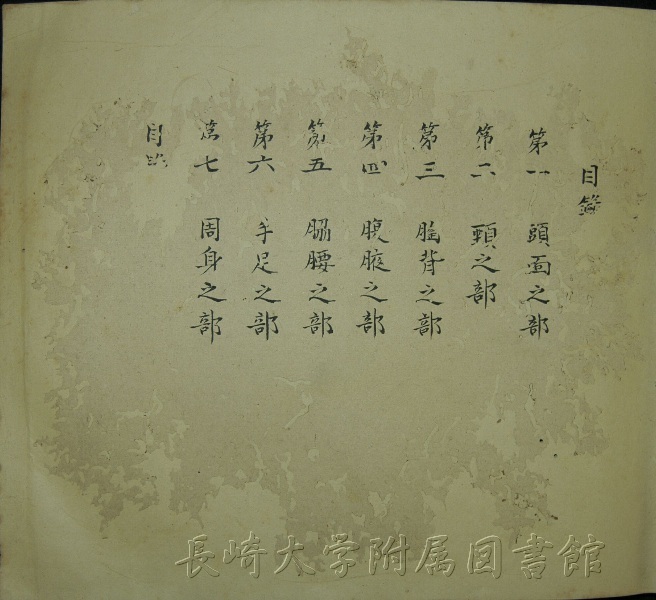 目錄
第一 頭面之部
第二 頸之部
第三 胸背之部
第四 腹腋之部
第五 脇腰之部
第六 手足之部
第七 周身之部
目
長崎大学附属図書館